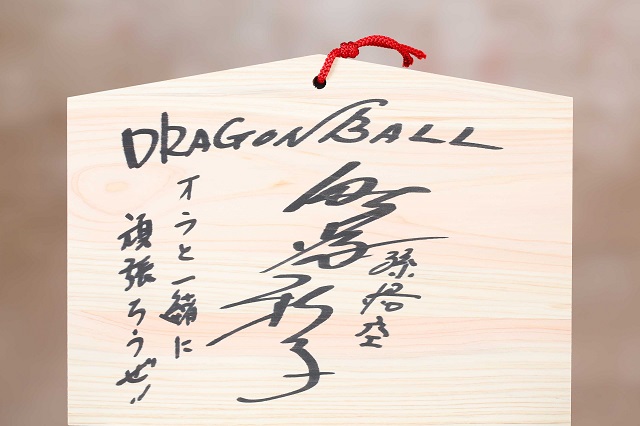 DRAGON BALL
孫悟空
野沢雅子
オラと一緒に
頑張ろうぜ!!